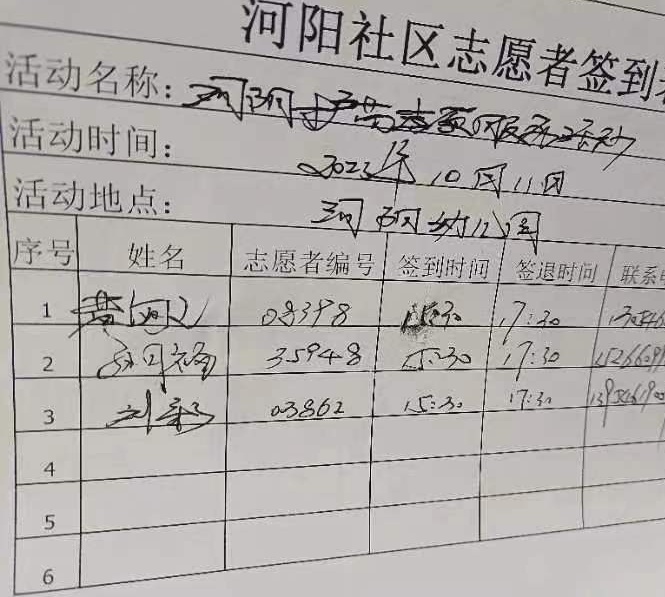 河阳社区志愿者签到
活动名称：河阳 志愿服务活动
活动时间：2023年10月11日
活动地点：河阳幼儿园
序号 姓名 志愿者编号 签到时间 签退时间 联系
1 黄 08398 15:30 17:30
2 35948 15:30 17:30
3 刘 03862 15:30 17:30
4
5
6